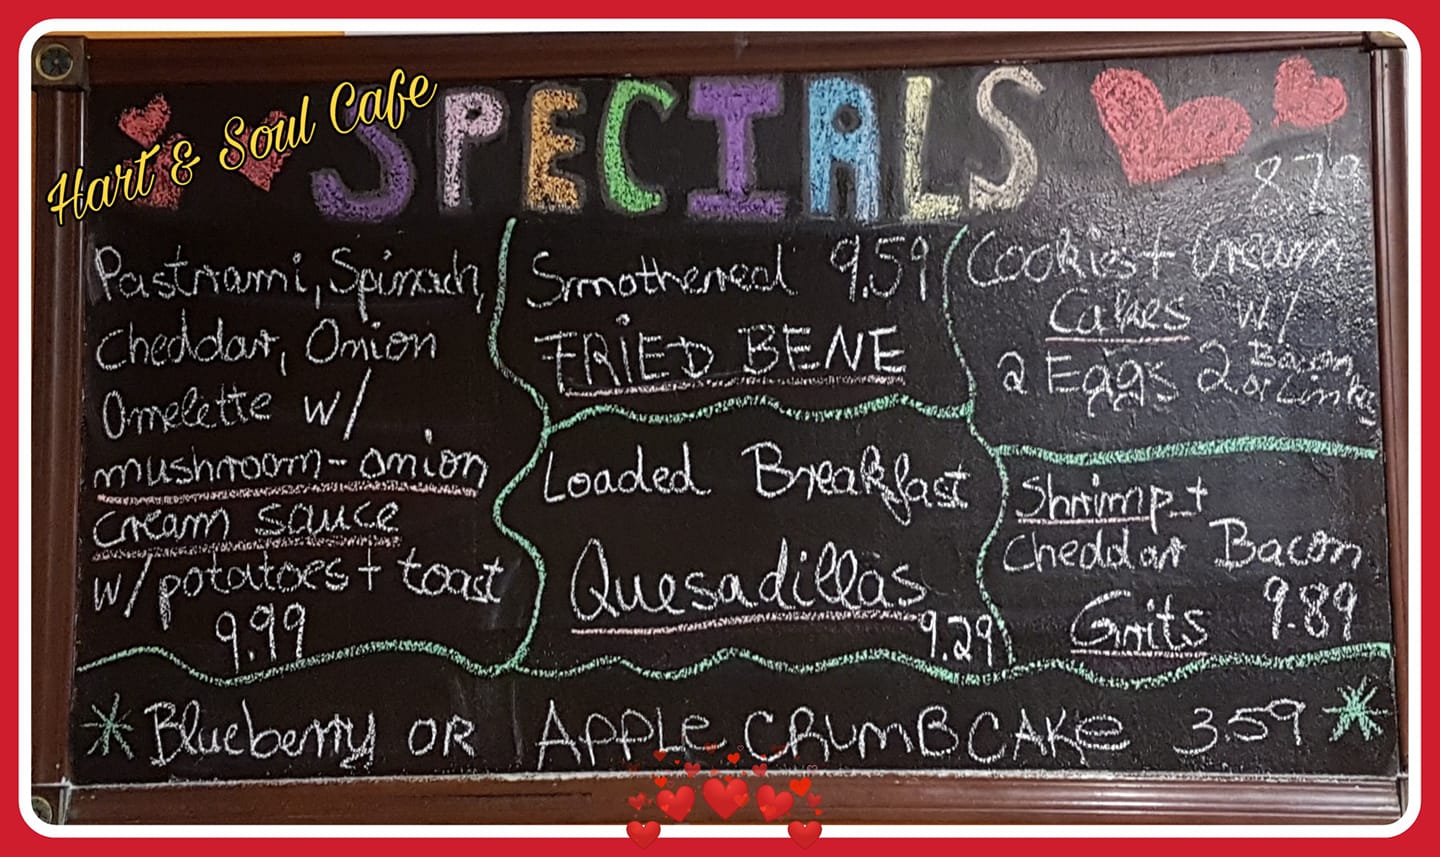 Hart & Soul Cafe
SPECIALS
Pastrami, Spinach,
Cheddar, Onion
Omelette w/
mushroom-onion
cream sauce
w/potatoes + toast
9.99
Smothered 9.59
FRIED BENE
Loaded Breakfast
Quesadillas
9.29
8.79
Cookies + Cream
Cakes w/
2 Eggs 2 Bacon
or Links
Shrimp +
Cheddar Bacon
Grits 9.89
Blueberry OR APPLE CRUMBCAKE 3.59